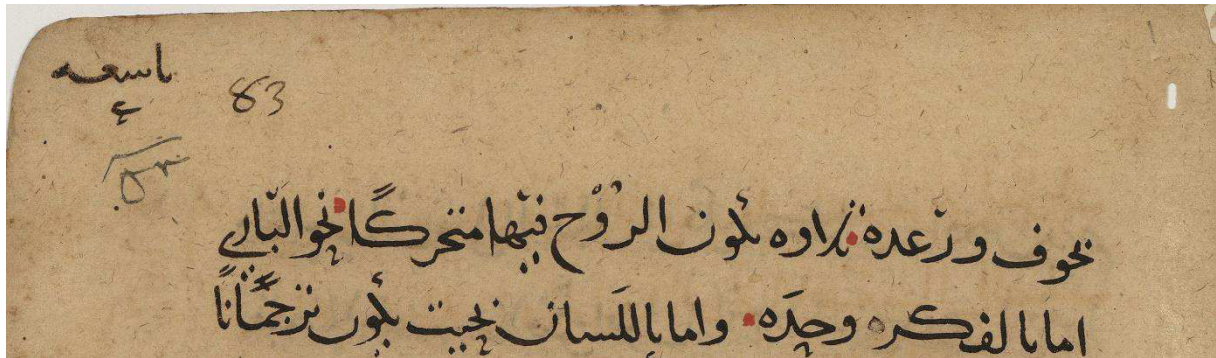 تاسعه
83
بخوف ورعدة يكون الروح فيها متحركًا نحو الباري
اما بالفكره وحده • واما باللسان بحيث يكون ترجمانًا